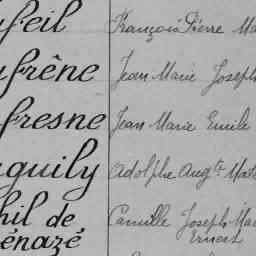 feil François Pierre Ma
frêne Jean Marie Joseph
fresne Jean Marie Emile
guily Adolphe Augte Mat
hil de Camille Joseph Ma
énazé Ernest